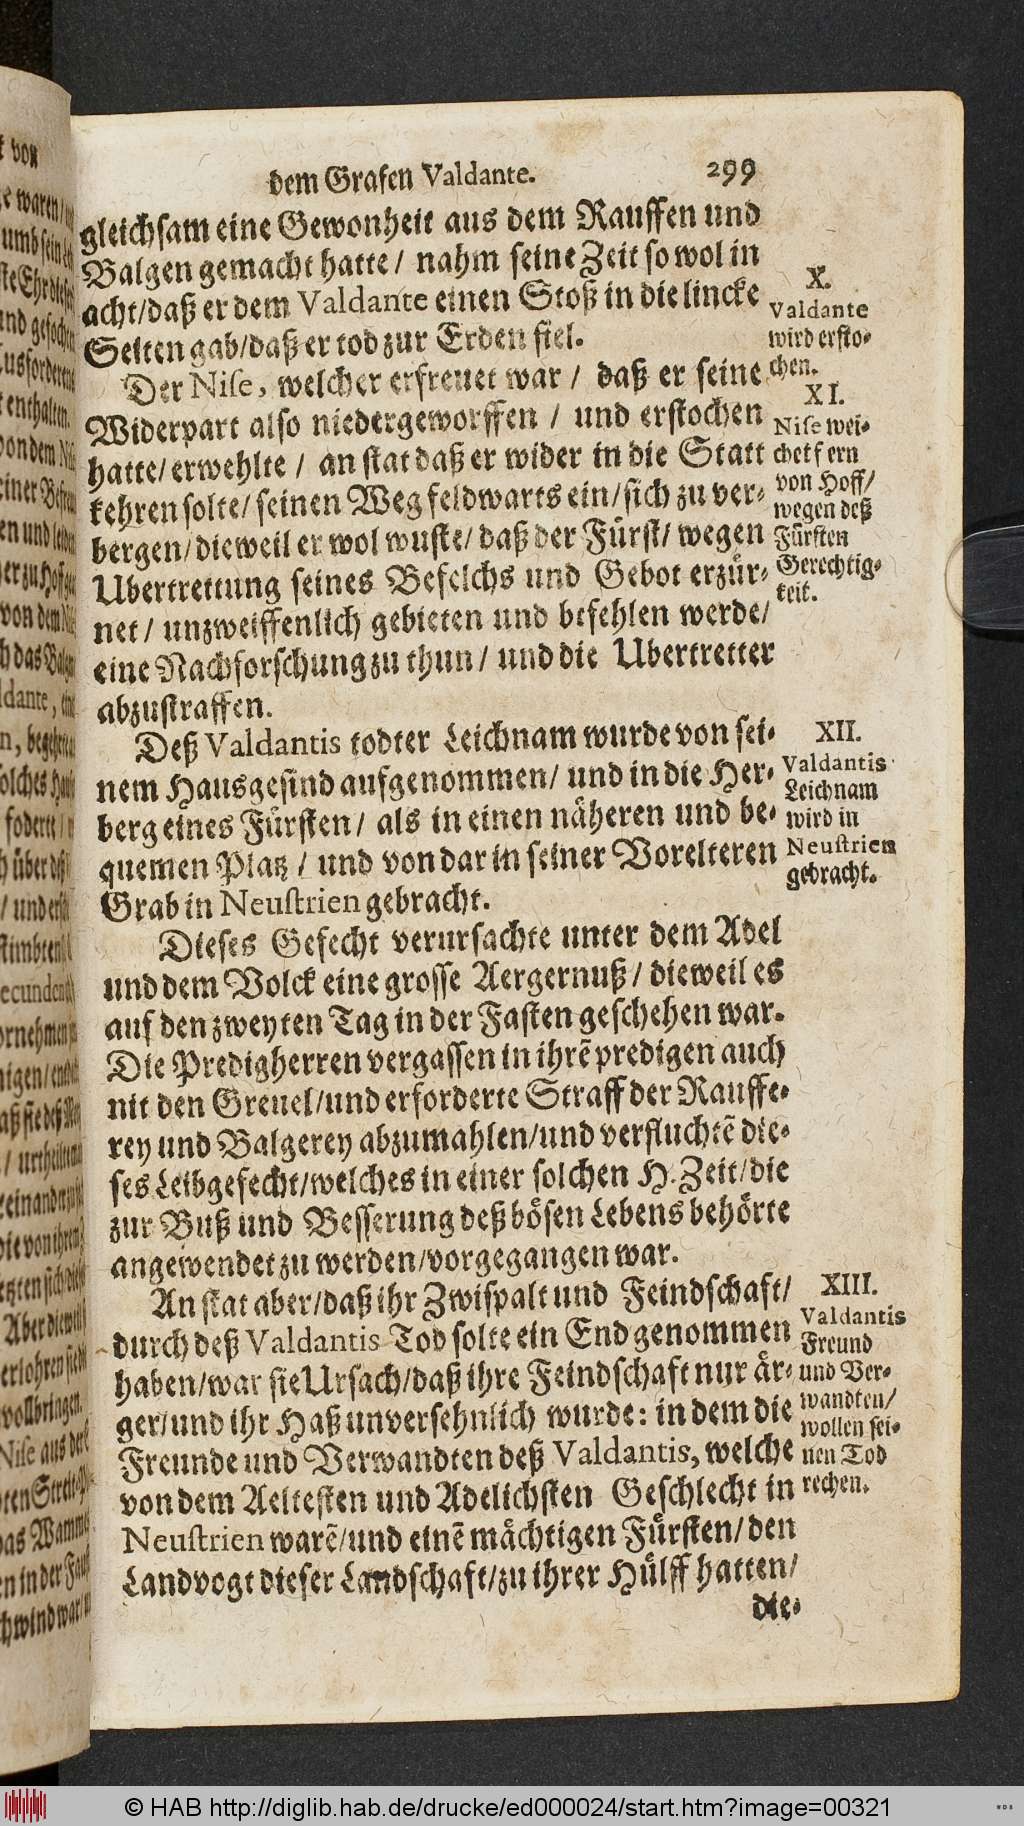 dem Grafen Valdante. 299
gleichsam eine Gewonheit aus dem Rauffen und
Balgen gemacht hatte / nahm seine Zeit so wol in
acht/daß er dem Valdante einen Stoß in die lincke
Seiten gab/daß er tod zur Erden fiel.
X.
Valdante
wird ersto-
chen.
Der Nise, welcher erfreuet war / daß er seine
Widerpart also niedergeworffen / und erstochen
hatte/ erwehlte / an stat daß er wider in die Statt
kehren solte/ seinen Weg feldwarts ein/sich zu ver-
bergen/dieweil er wol wuste/ daß der Fürst/ wegen
Ubertrettung seines Befelchs und Gebot erzür-
net / unzweiffenlich gebieten und befehlen werde/
eine Nachforschung zu thun / und die Ubertretter
abzustraffen.
XI.
Nise wei-
chet fern
von Hoff/
wegen deß
Fürsten
Gerechtig-
keit.
Deß Valdantis todter Leichnam wurde von sei-
nem Hausgesind aufgenommen/ und in die Her-
berg eines Fürsten/ als in einen näheren und be-
quemen Platz / und von dar in seiner Vorelteren
Grab in Neustrien gebracht.
XII.
Valdantis
Leichnam
wird in
Neustrien
gebracht.
Dieses Gefecht verursachte unter dem Adel
und dem Volck eine grosse Aergernuß/ dieweil es
auf den zweyten Tag in der Fasten geschehen war.
Die Predigherren vergassen in ihrē predigen auch
nit den Greuel/und erforderte Straff der Rauffe-
rey und Balgerey abzumahlen/und verfluchtē die-
ses Leibgefecht/welches in einer solchen H. Zeit/die
zur Buß und Besserung deß bösen Lebens behörte
angewendet zu werden/vorgegangen war.
An stat aber/daß ihr Zwispalt und Feindschaft/
durch deß Valdantis Tod solte ein End genommen
haben/war sie Ursach/daß ihre Feindschaft nur är-
ger/und ihr Haß unversehnlich wurde: in dem die
Freunde und Verwandten deß Valdantis, welche
von dem Aeltesten und Adelichsten Geschlecht in
Neustrien warē/und einē mächtigen Fürsten/ den
Landvogt dieser Landschaft/zu ihrer Hülff hatten/
XIII.
Valdantis
Freund
und Ver-
wandten/
wollen sei-
nen Tod
rechen.
die-
© HAB http://diglib.hab.de/drucke/ed000024/start.htm?image=00321